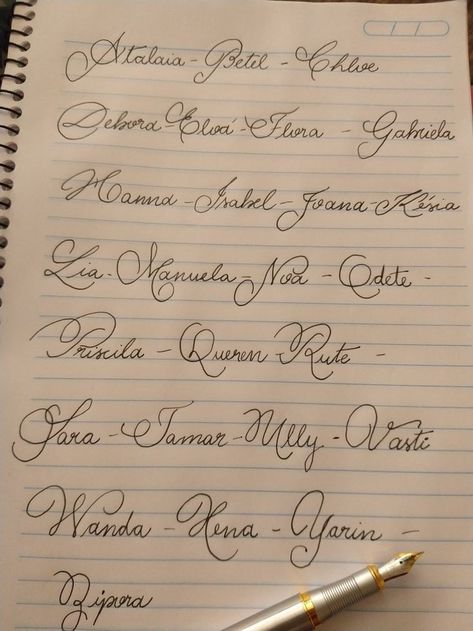 Atalaia - Betel - Chloe
Debora - Eloá - Flora - Gabriela
Hanna - Isabel - Joana - Késia
Lia - Manuela - Noa - Odete -
Priscila - Queren - Rute -
Sara - Tamar - Ully - Vasti
Wanda - Xena - Yarin -
Zípora